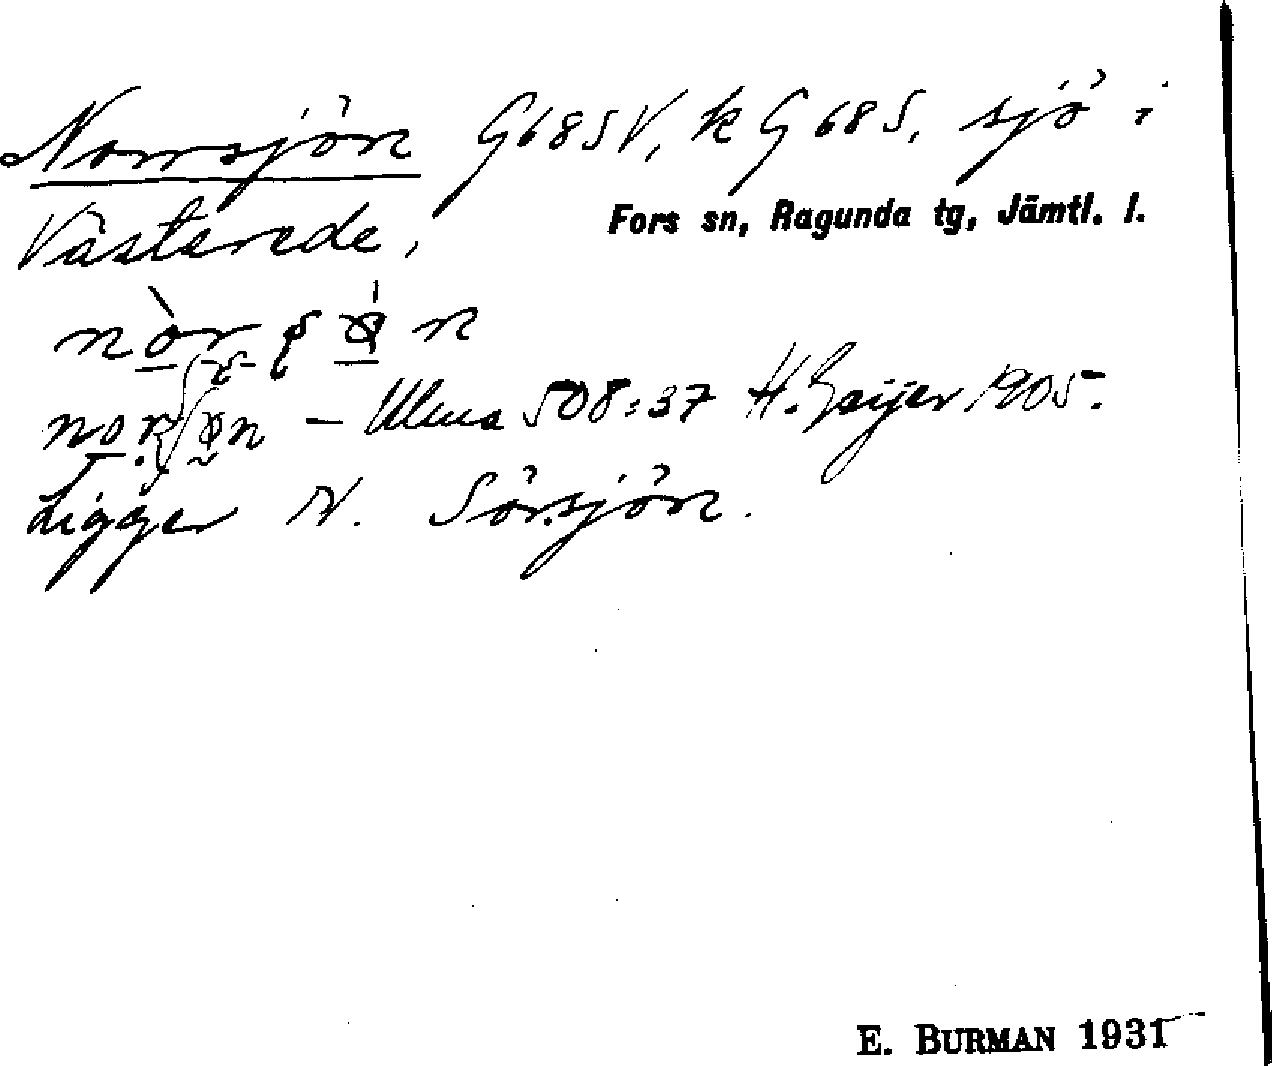 Norrsjön G68SV, k G 68 S, sjö i
Västerede, Fors sn, Ragunda tg, Jämtl. l.
– Ulma 508:37 H. Geijer 1905.
Ligger N. Sörsjön.
E. BURMAN 1931